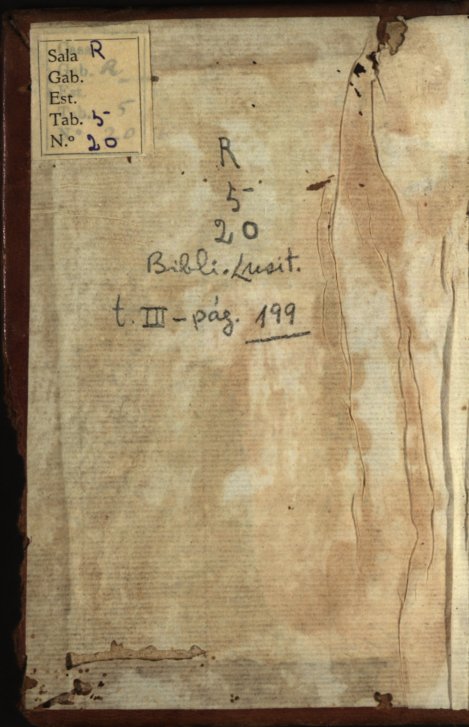 Sala R
Gab.
Est.
Tab. 5
N.º 20
R
5
20
Bibli. Lusit.
t. III - pág. 199